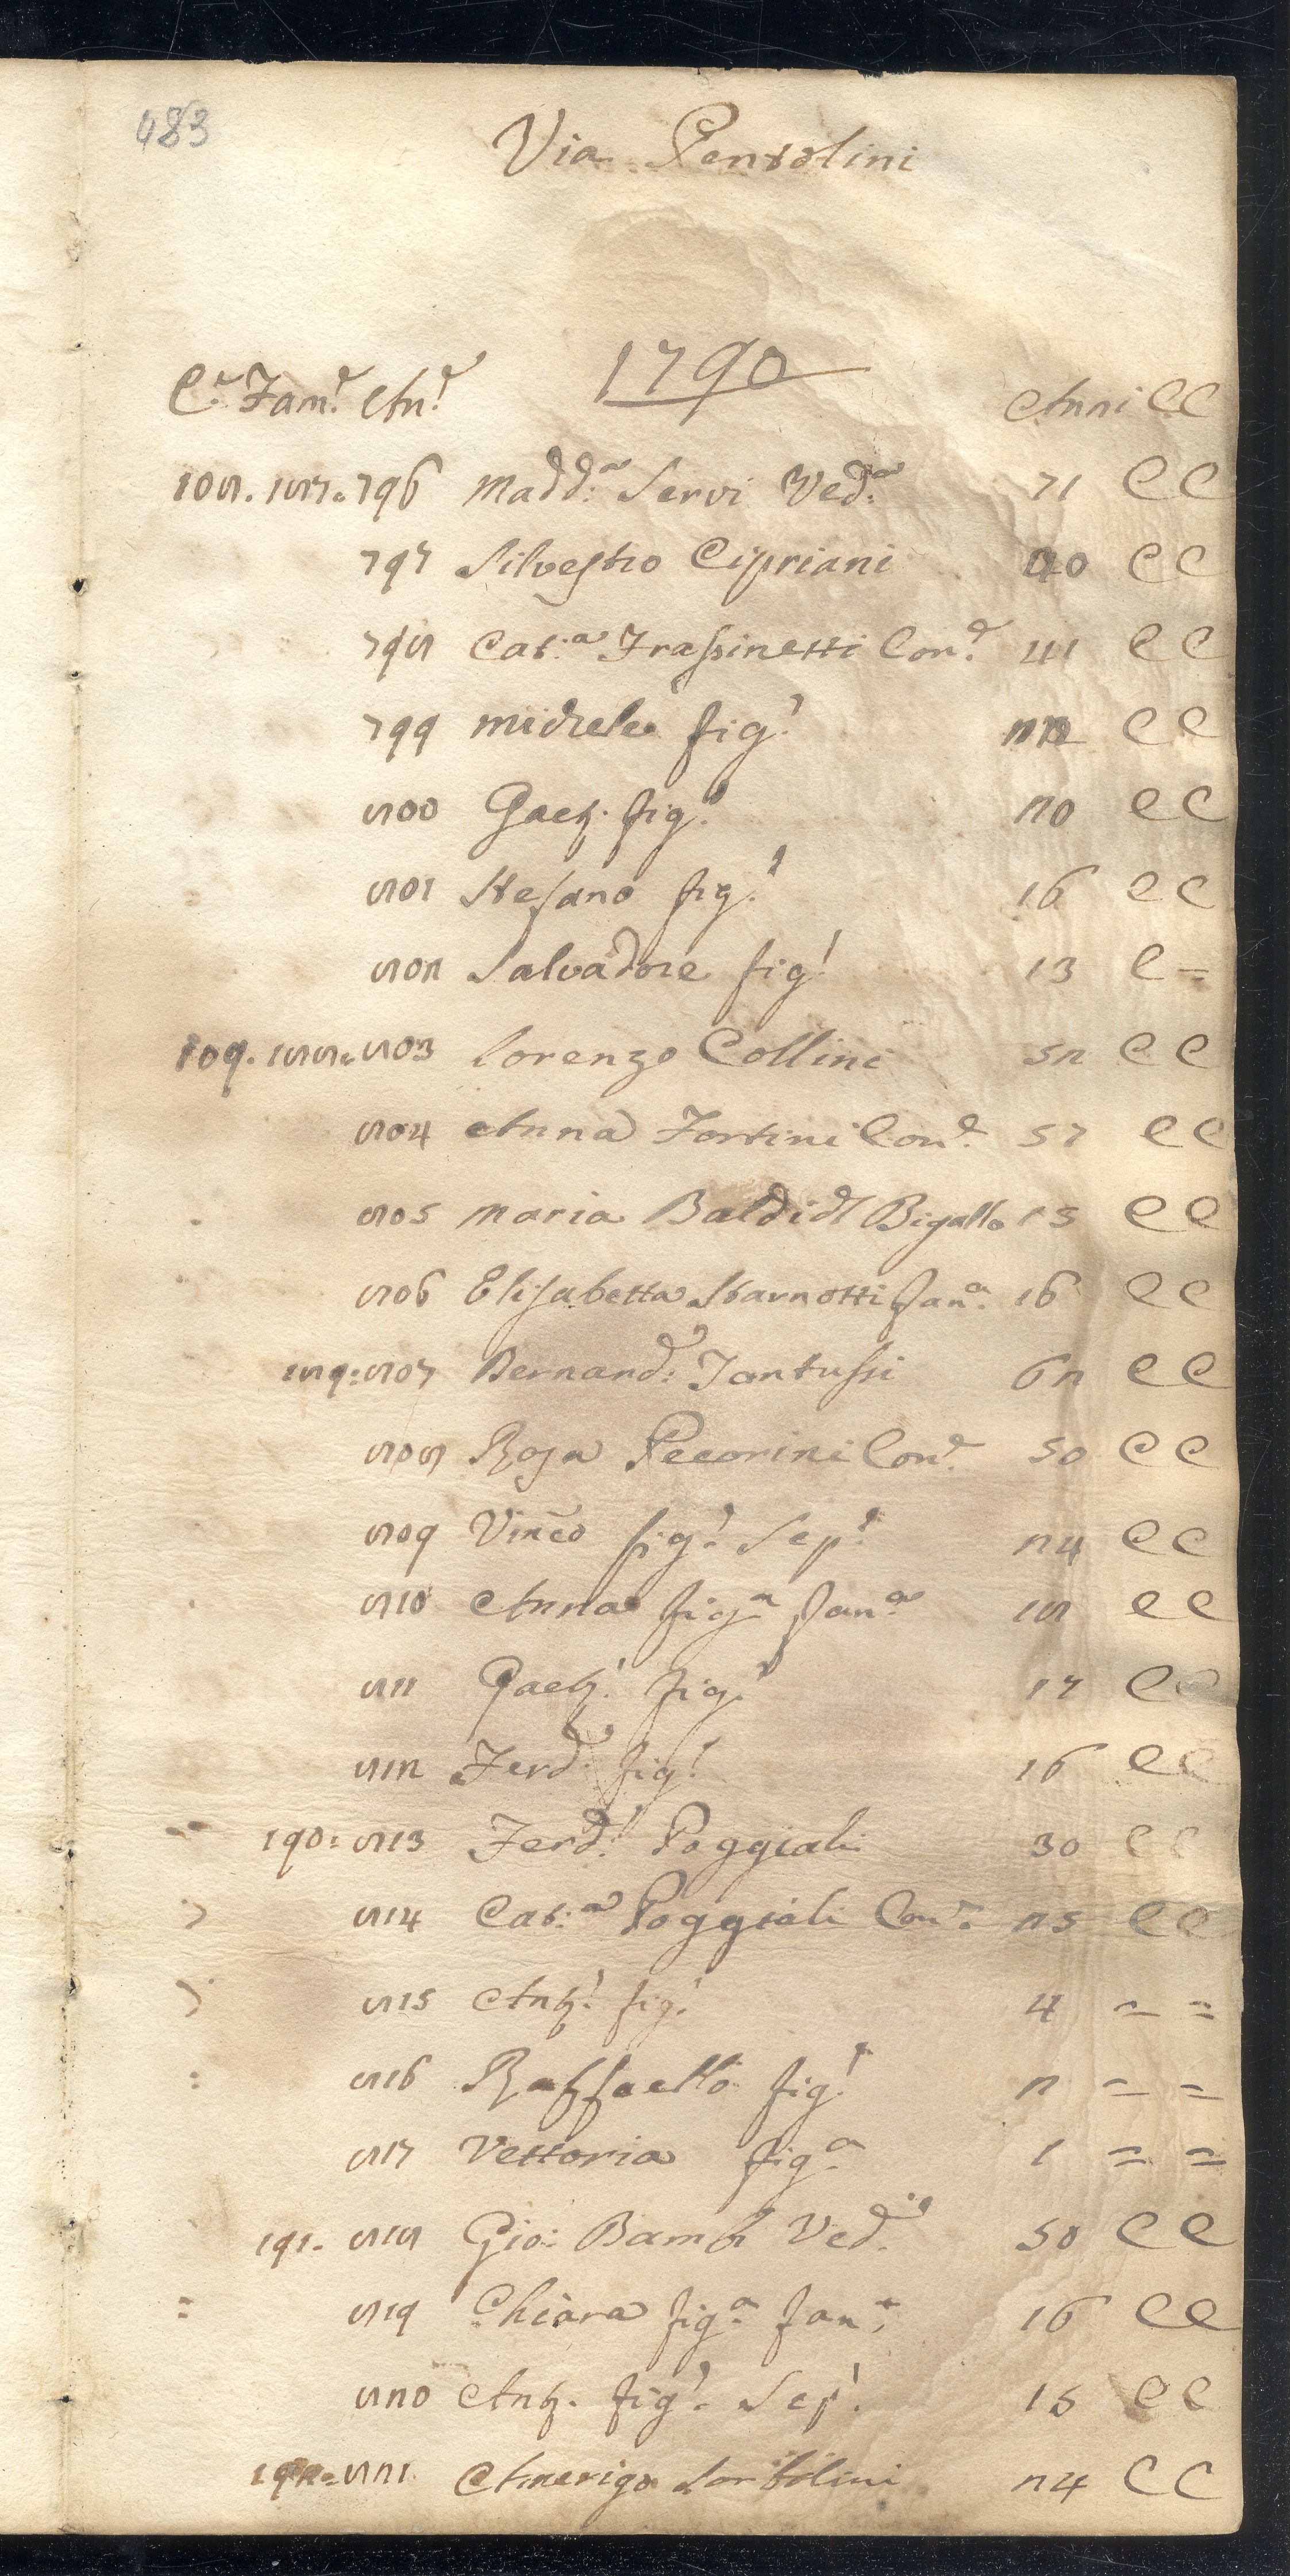 483
Via Pentolini
1790
C.ᵉ Fam.ᵉ An.ᵉ Anni CC
108. 187. 796 Madd.ᵃ Servi Ved.ᵃ 71 CC
797 Silvestro Cipriani 40 CC
798 Cat.ᵃ Frassinetti Con.ᵉ 41 CC
799 Michele fig.º 22 CC
800 Gaet. fig.º 20 CC
801 Stefano fig.º 16 CC
802 Salvadore fig.º 13 C =
109. 188. 803 Lorenzo Collini 52 CC
804 Anna Fortini Con.ᵉ 57 CC
805 Maria Baldi dl Bigallo 15 CC
806 Elisabetta fan.ᵃ 16 CC
189: 807 Bernard.º Fantussi 62 CC
808 Rosa Pecorini Con.ᵉ 50 CC
809 Vinco fig.º Sep.º 24 CC
810 Anna fig.ᵃ fan.ᵃ 18 CC
811 Gaet.º fig.º 17 CC
812 Ferd.º fig.º 16 CC
190: 813 Ferd.º Poggiali 30 CC
814 Cat.ᵃ Poggiali Con.ᵉ 25 CC
815 Ant.º fig.º 4 = =
816 Raffaello fig.º 2 = =
817 Vettoria fig.ᵃ 1 = =
191. 818 Gio: Bambi Ved.º 50 CC
819 Chiara fig.ᵃ fan.ᵃ 16 CC
820 Ant. fig.º Sep.º 15 CC
192= 821 Amerigo Sorbolini 24 CC